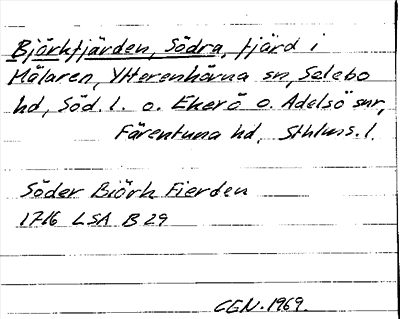 Björkfjärden, Södra, fjärd i
Mälaren, Ytterenhörna sn, Selebo
hd, Söd. l. o. Ekerö o. Adelsö snr,
Färentuna hd, Sthlms. l.
Söder Biörk Fierden
1716 LSA B 29
CEN. 1969.